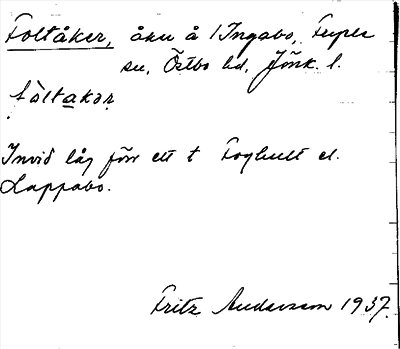 Foltåker, åker å 1 Ingabo, Furu
sn, Östbo hd, Jönk. l.
fòltakər
Invid låg förr ett t Foghult el.
Lappabo.
Fritz Andersson 1937.